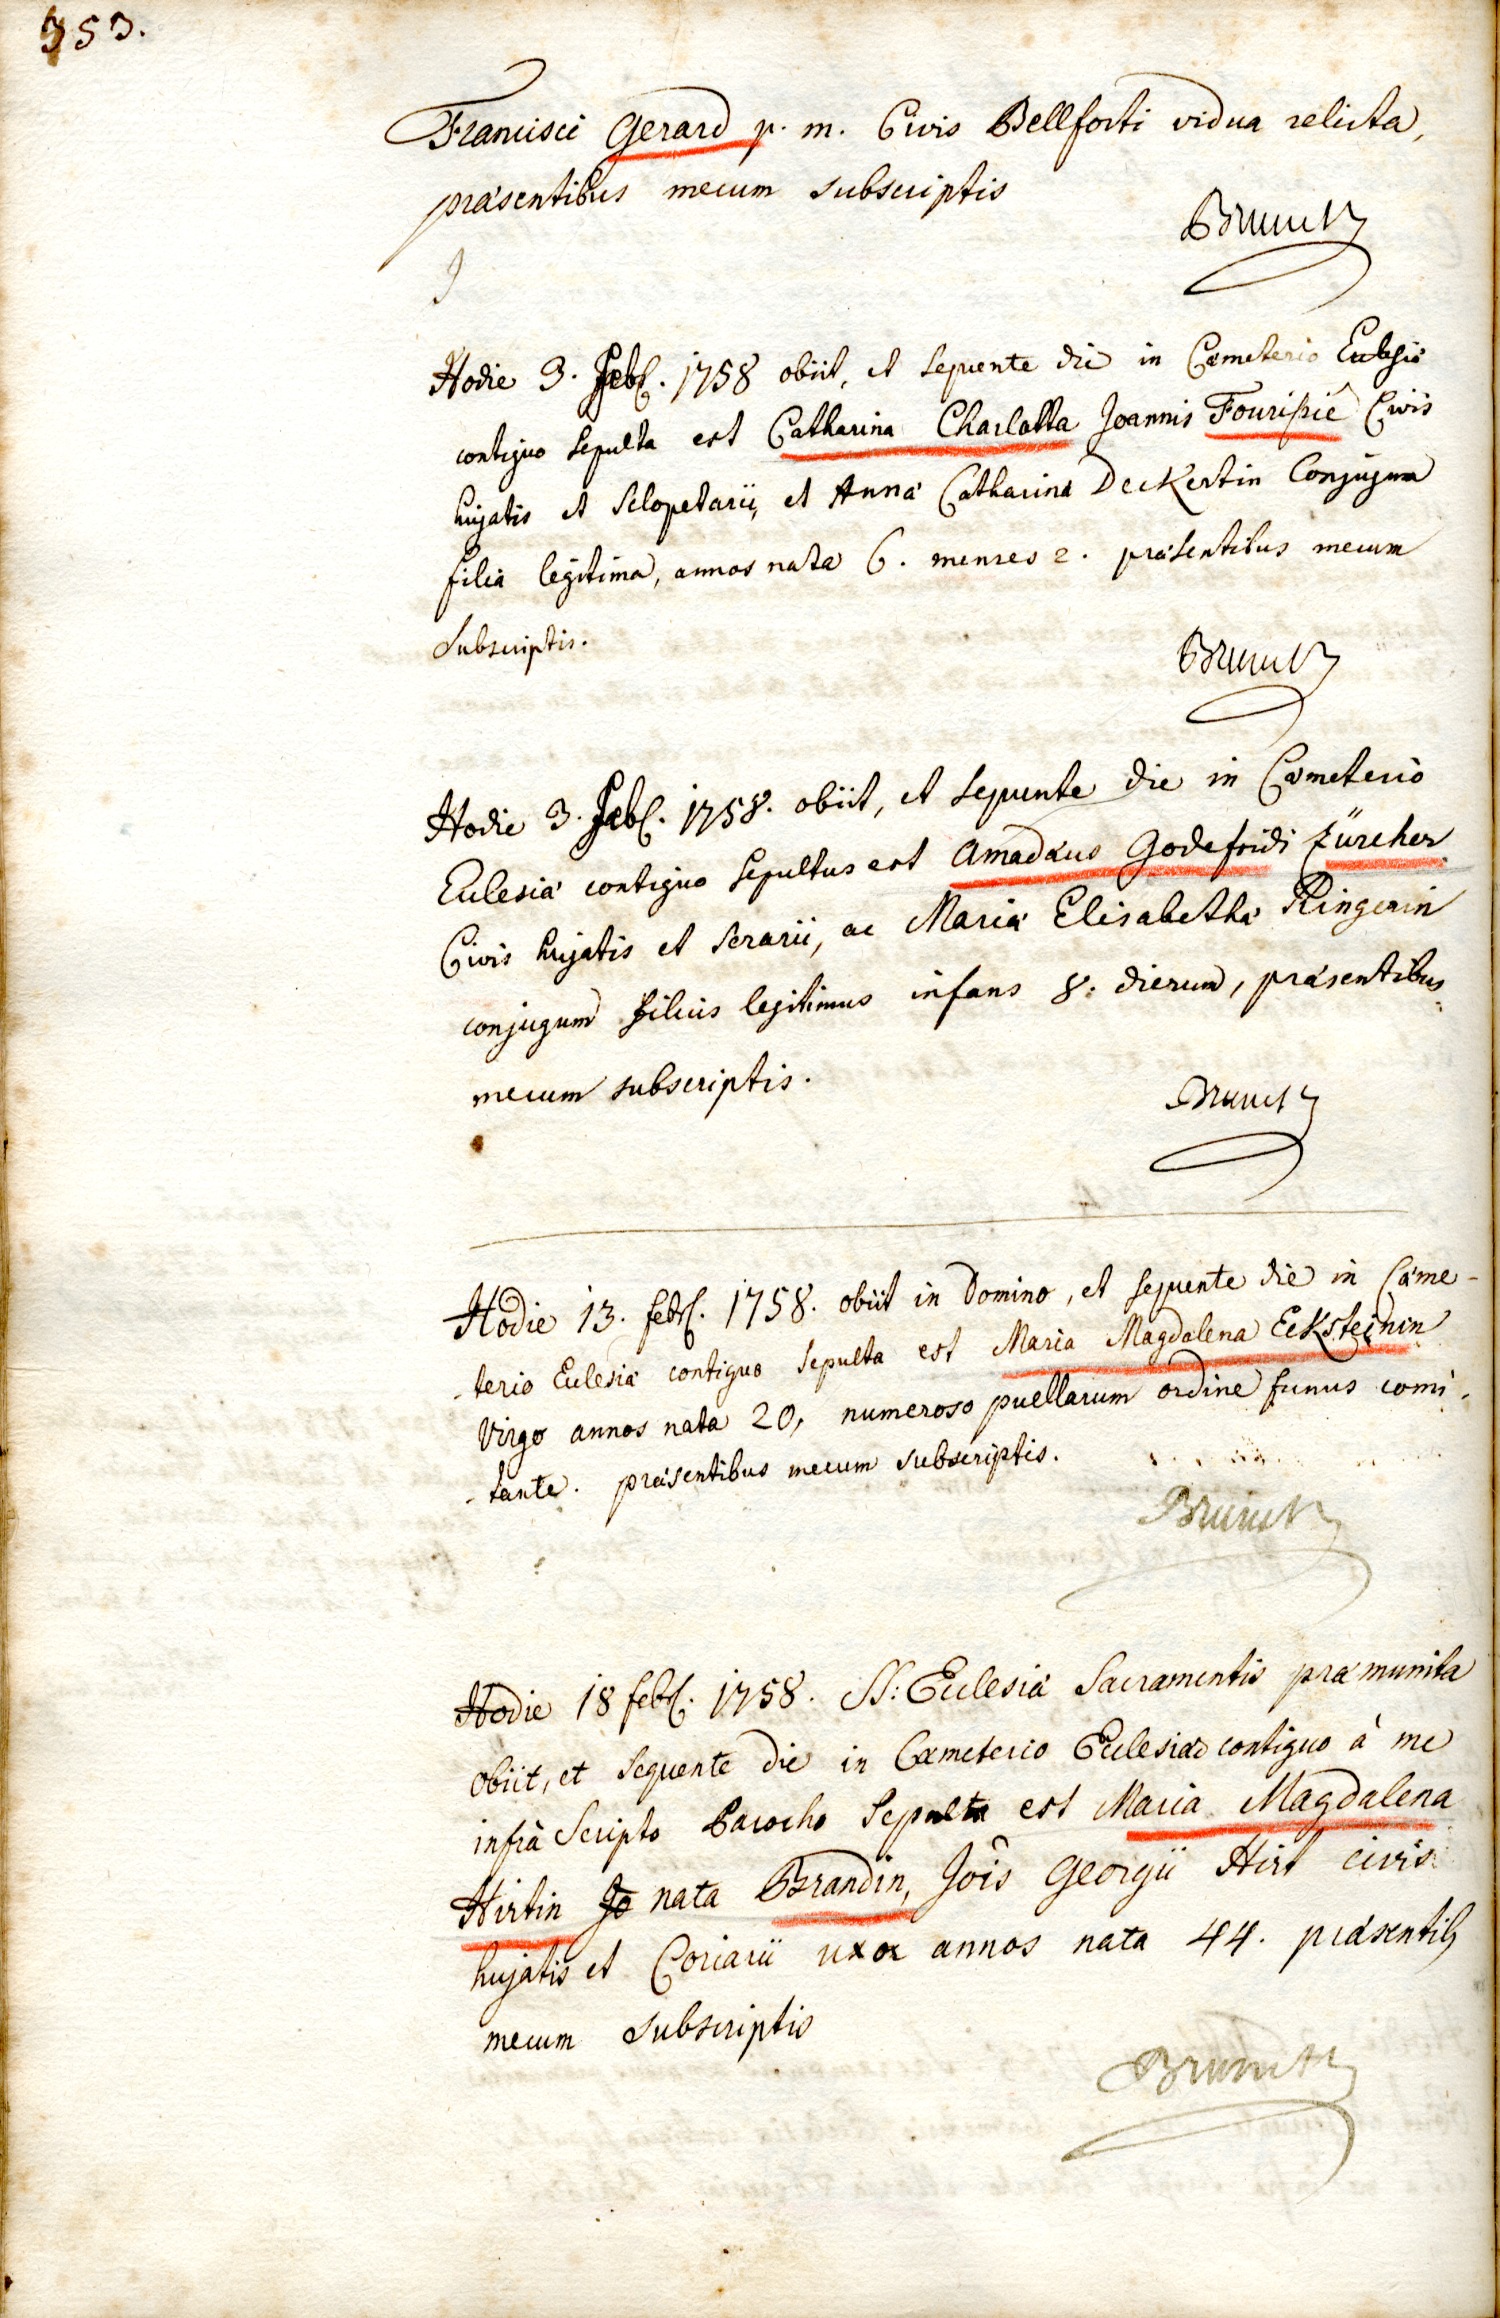 353.
Francisci Gerard p. m. Civis Bellforti vidua relicta,
præsentibus mecum subscriptis
Brunck
Hodie 3. Febr. 1758 obiit, et sequente die in Cœmeterio Ecclesiæ
contiguo sepulta est Catharina Charlotta Joannis Fourisiê Civis
hujatis et Sclopetarii, et Annæ Catharinæ Deckertin Conjugum
filia legitima, annos nata 6. menses 2. præsentibus mecum
Subscriptis.
Brunck
Hodie 3. Febr. 1758. obiit, et sequente die in Cœmeterio
Ecclesiæ contiguo sepultus est Amadæus Godefridi Zürcher
Civis hujatis et serarii, ac Mariæ Elisabethæ Ringerin
conjugum filius legitimus infans 8. dierum, præsentibus
mecum subscriptis.
Brunck
Hodie 13. febr. 1758. obiit in Domino, et sequente die in Cœme-
-terio Ecclesiæ contiguo sepulta est Maria Magdalena Ecksteinin
Virgo annos nata 20, numeroso puellarum ordine funus comi-
-tante. præsentibus mecum subscriptis.
Brunck
Hodie 18 febr. 1758. SS: Ecclesiæ Sacramentis præmunita
obiit, et sequente die in Cœmeterio Ecclesiæ contiguo à me
infrà Scripto Parocho Sepulta est Maria Magdalena
Hirtin Jo nata Brandin, Jois Georgii Hirt civis
hujatis et Coriarii uxor annos nata 44. præsentib9
mecum subscriptis
Brunck